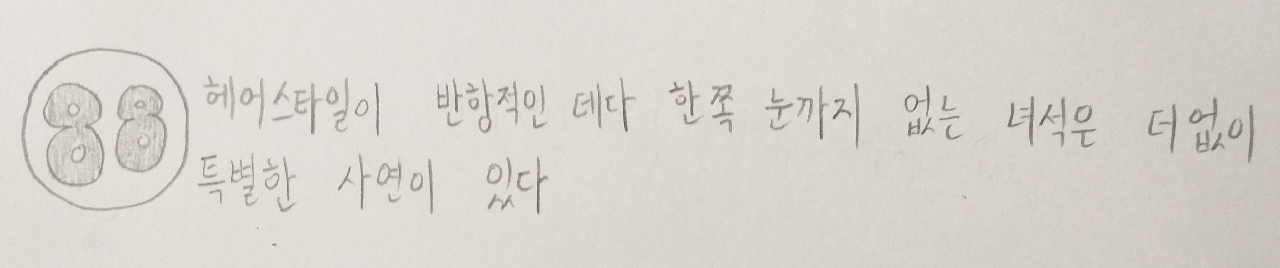 88 헤어스타일이 반항적인 데다 한쪽 눈까지 없는 녀석은 더없이
특별한 사연이 있다